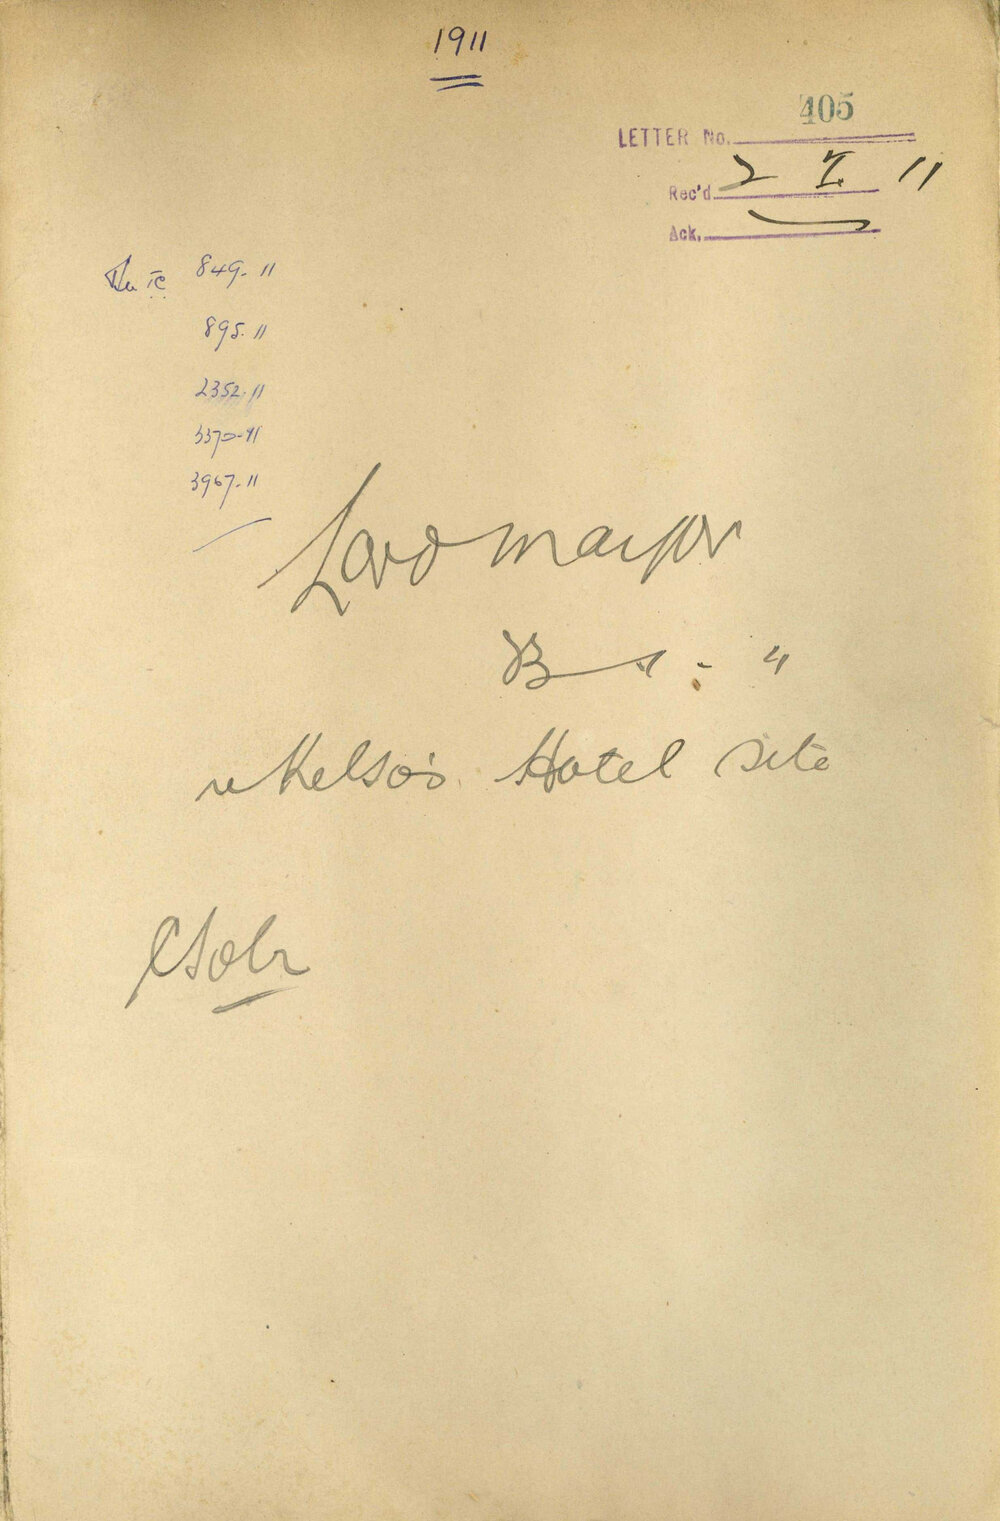 1911
405
LETTER No.
Rec'd 2 I 11
Ack.
849-11
895.11
2352.11
3370-11
3967.11
Lord mayor
B
re Kelso's Hotel site
CSolr